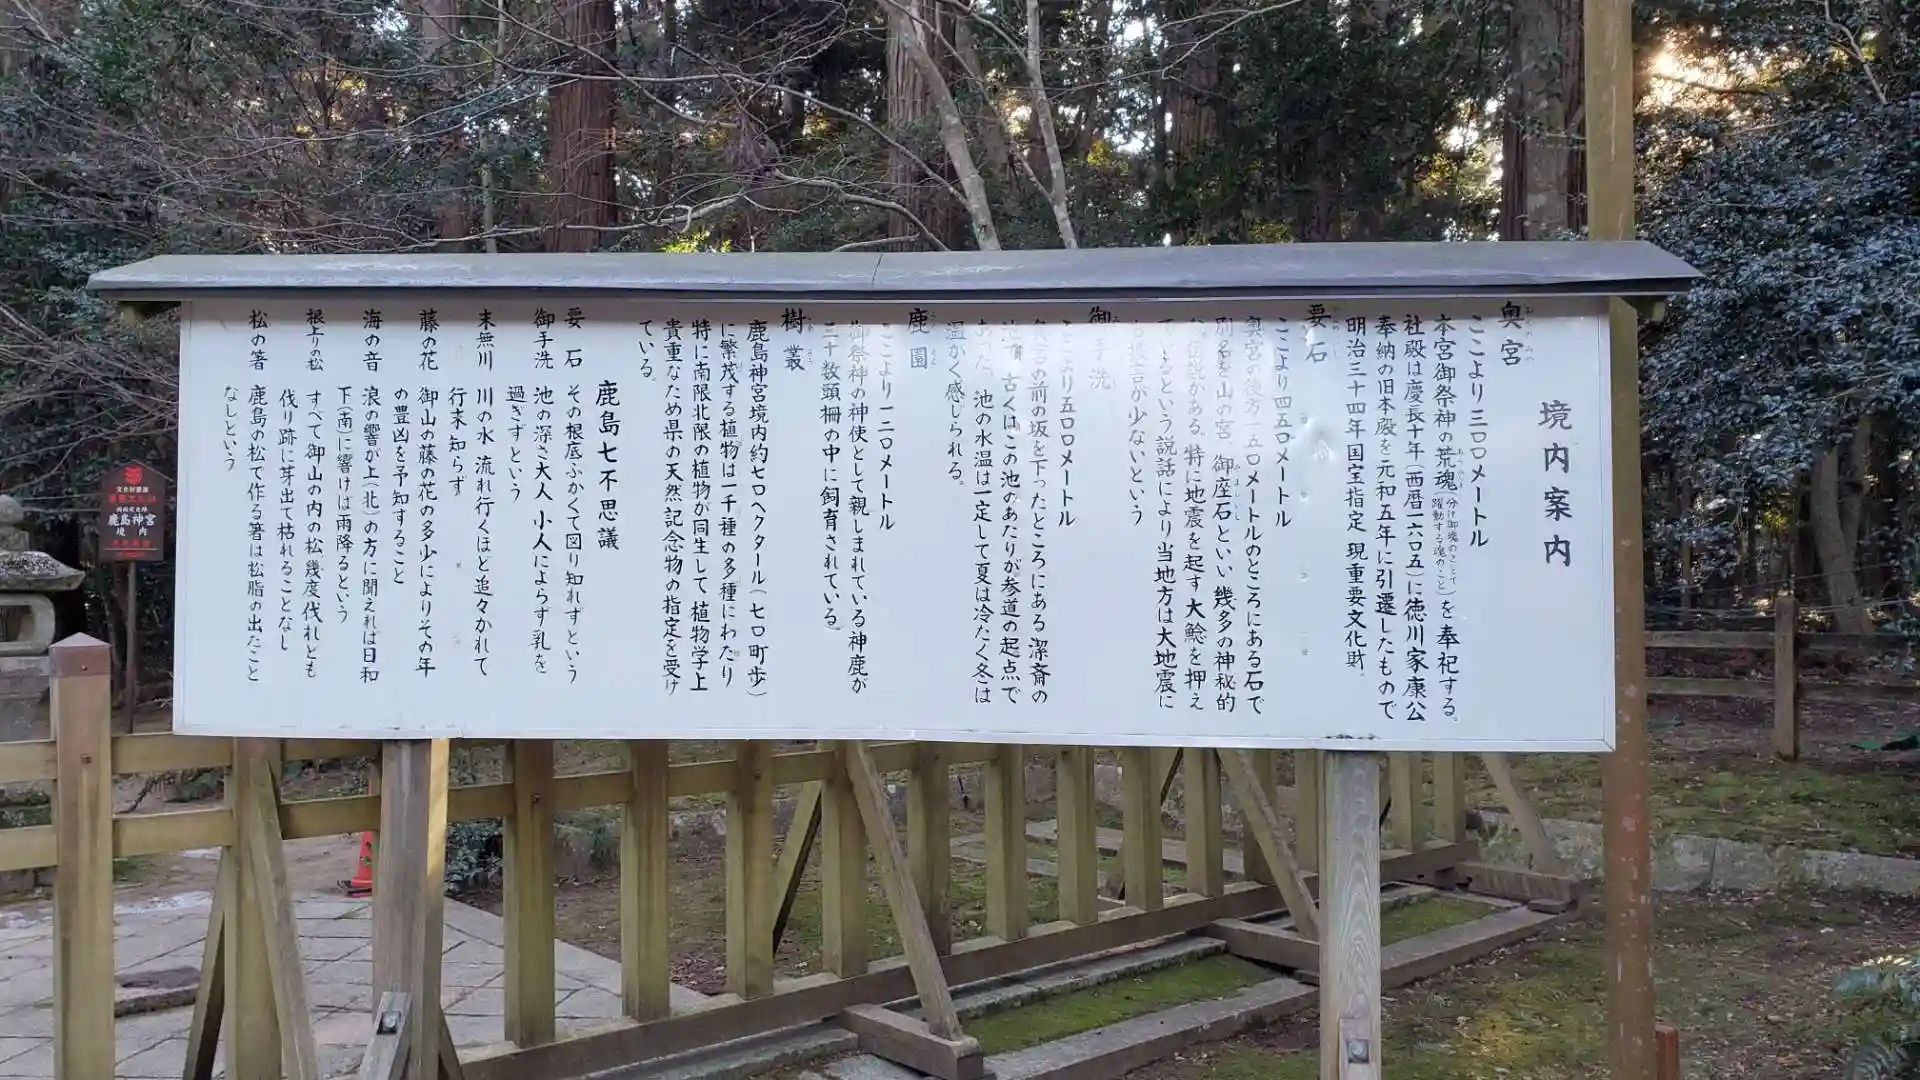 境内案内
奥宮
ここより三〇〇メートル
本宮御祭神の荒魂(分け御魂のことで躍動する魂のこと)を奉祀する。
社殿は慶長十年(西暦一六〇五)に徳川家康公
奉納の旧本殿を元和五年に引遷したもので
明治三十四年国宝指定 現重要文化財。
要石
ここより四五〇メートル
奥宮の後方一五〇メートルのところにある石で
別名を山の宮、御座石といい幾多の神秘的
な伝説がある。特に地震を起す大鯰を押え
ているという説話により当地方は大地震に
も被害が少ないという
御手洗
ここより五〇〇メートル
奥宮の前の坂を下ったところにある潔斎の
池 古くはこの池のあたりが参道の起点で
あった 池の水温は一定して夏は冷たく冬は
温かく感じられる。
鹿園
ここより一三〇メートル
御祭神の神使として親しまれている神鹿が
三十数頭柵の中に飼育されている。
樹叢
鹿島神宮境内約七〇ヘクタール(七〇町歩)
に繁茂する植物は一千種の多種にわたり
特に南限北限の植物が同生して植物学上
貴重なため県の天然記念物の指定を受け
ている。
鹿島七不思議
要石 その根底ふかくて図り知れずという
御手洗 池の深さ大人 小人によらず乳を
過ぎずという
末無川 川の水 流れ行くほど追々かれて
行末知らず
藤の花 御山の藤の花の多少によりその年
の豊凶を予知すること
海の音 浪の響が上(北)の方に聞えれば日和
下(南)に響けば雨降るという
根上りの松 すべて御山の内の松 幾度伐れども
伐り跡に芽出て枯れることなし
松の箸 鹿島の松で作る箸は松脂の出たこと
なしという
鹿島神宮
境内